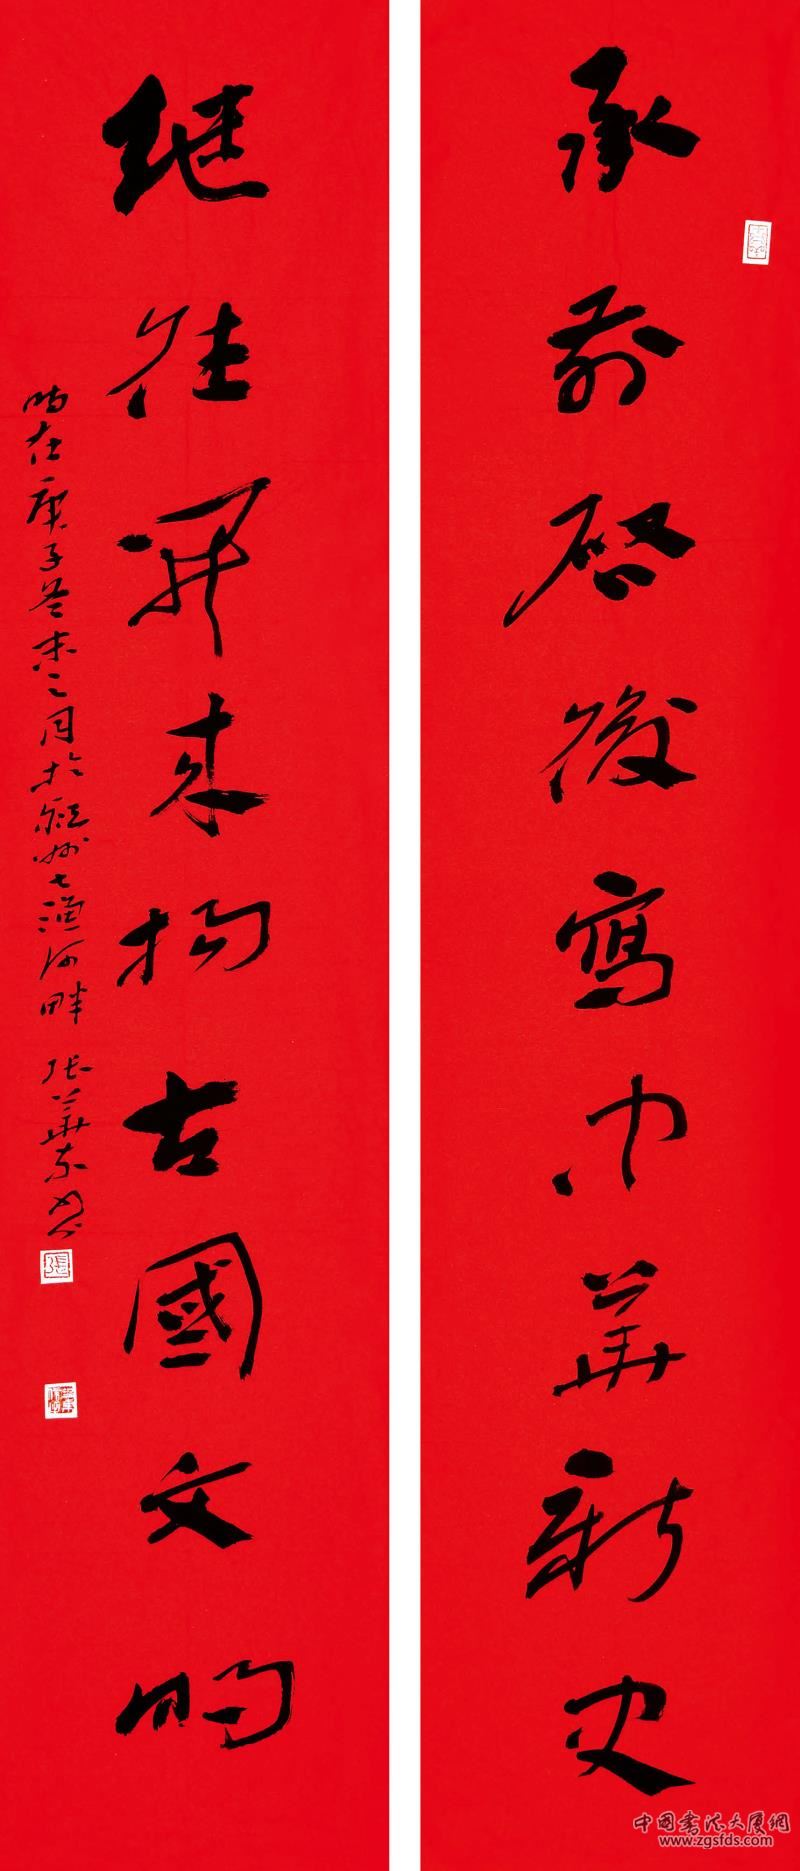 承前啓後寫中華新史
继往開来揚古國文明
時在庚子冬末之月於潁州七漁河畔
張華東書
中國書法大厦網
www.zgsfds.com